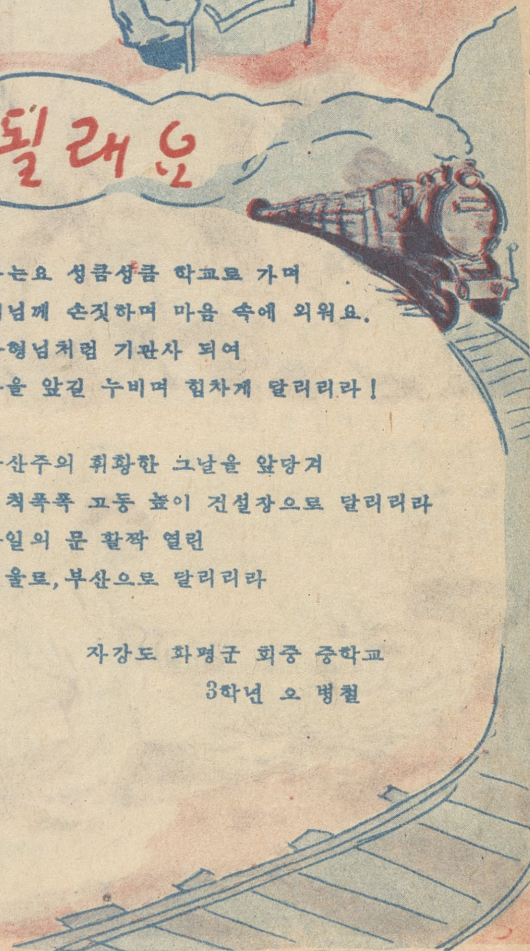 될래요
는요 성큼성큼 학교로 가며
님께 손짓하며 마음 속에 외워요.
형님처럼 기관사 되여
을 앞길 누비며 힘차게 달리리라!
산주의 휘황한 그날을 앞당겨
척폭폭 고동 높이 건설장으로 달리리라
일의 문 활짝 열린
울로, 부산으로 달리리라
자강도 화평군 회중 중학교
3학년 오 병철